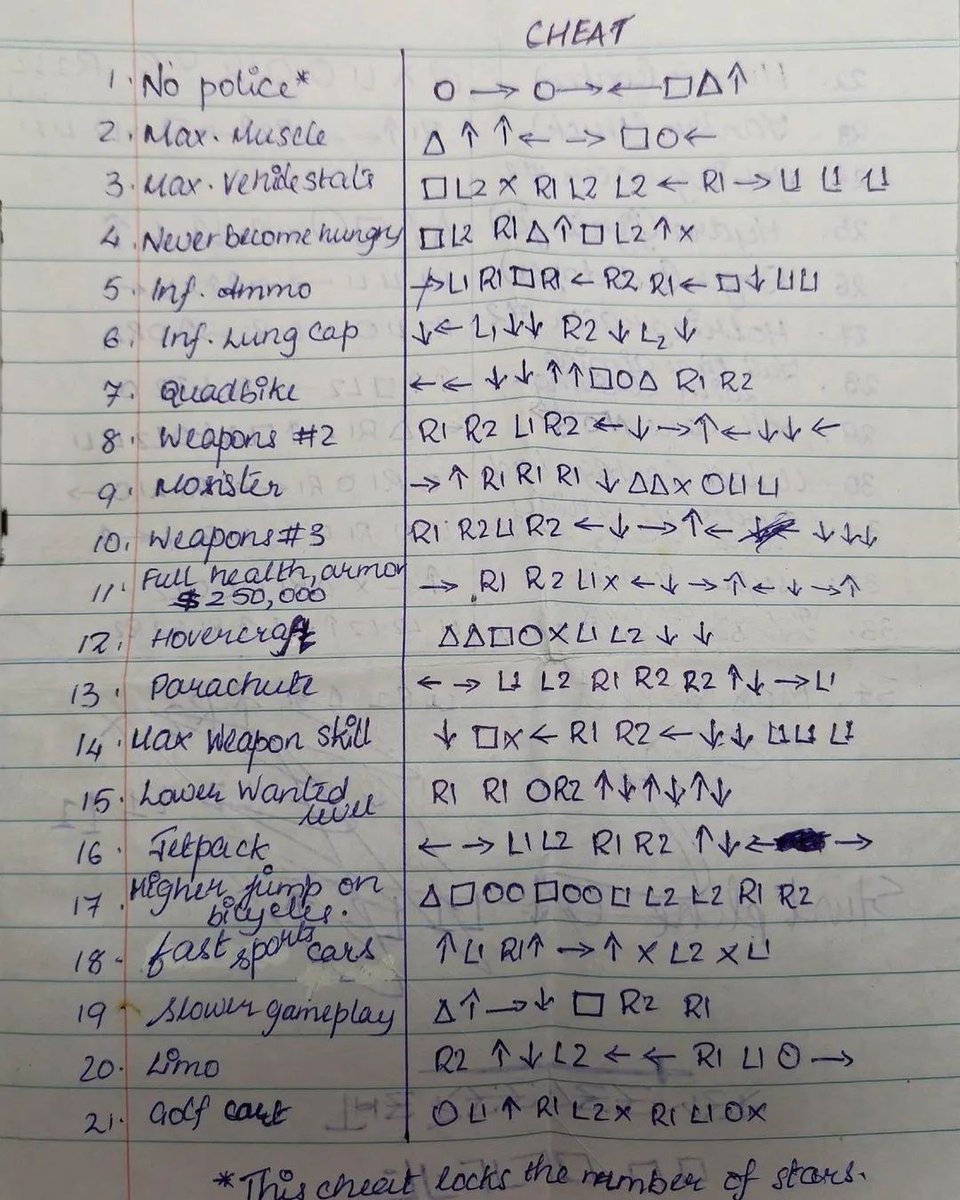 CHEAT
1. No police* O → O → ← □ △ ↑
2. Max. Muscle △ ↑ ↑ ← → □ O ←
3. Max. Vehicle stats □ L2 X R1 L2 L2 ← R1 → L1 L1 L1
4. Never become hungry □ L2 R1 △ ↑ □ L2 ↑ X
5. Inf. Ammo → L1 R1 □ R1 ← R2 R1 ← □ ↓ L1 L1
6. Inf. Lung cap ↓ ← L1 ↓ ↓ R2 ↓ L2 ↓
7. Quadbike ← ← ↓ ↓ ↑ ↑ □ O △ R1 R2
8. Weapons #2 R1 R2 L1 R2 ← ↓ → ↑ ← ↓ ↓ ←
9. Monster → ↑ R1 R1 R1 ↓ △ △ X O L1 L1
10. Weapons #3 R1 R2 L1 R2 ← ↓ → ↑ ← ↓ ↓ ↓
11. Full health, armor
$250,000 → R1 R2 L1 X ← ↓ → ↑ ← ↓ → ↑
12. Hovercraft △ △ □ O X L1 L2 ↓ ↓
13. Parachute ← → L1 L2 R1 R2 R2 ↑ ↓ → L1
14. Max Weapon Skill ↓ □ X ← R1 R2 ← ↓ ↓ L1 L1 L1
15. Lower Wanted R1 R1 O R2 ↑ ↓ ↑ ↓ ↑ ↓
level
16. Jetpack ← → L1 L2 R1 R2 ↑ ↓ ← →
17. Higher jump on
bicycles. △ □ O O □ O O □ L2 L2 R1 R2
18. fast sports cars ↑ L1 R1 ↑ → ↑ X L2 X L1
19. Slower gameplay △ ↑ → ↓ □ R2 R1
20. Limo R2 ↑ ↓ L2 ← ← R1 L1 O →
21. Golf cart O L1 ↑ R1 L2 X R1 L1 O X
*This cheat locks the number of stars.